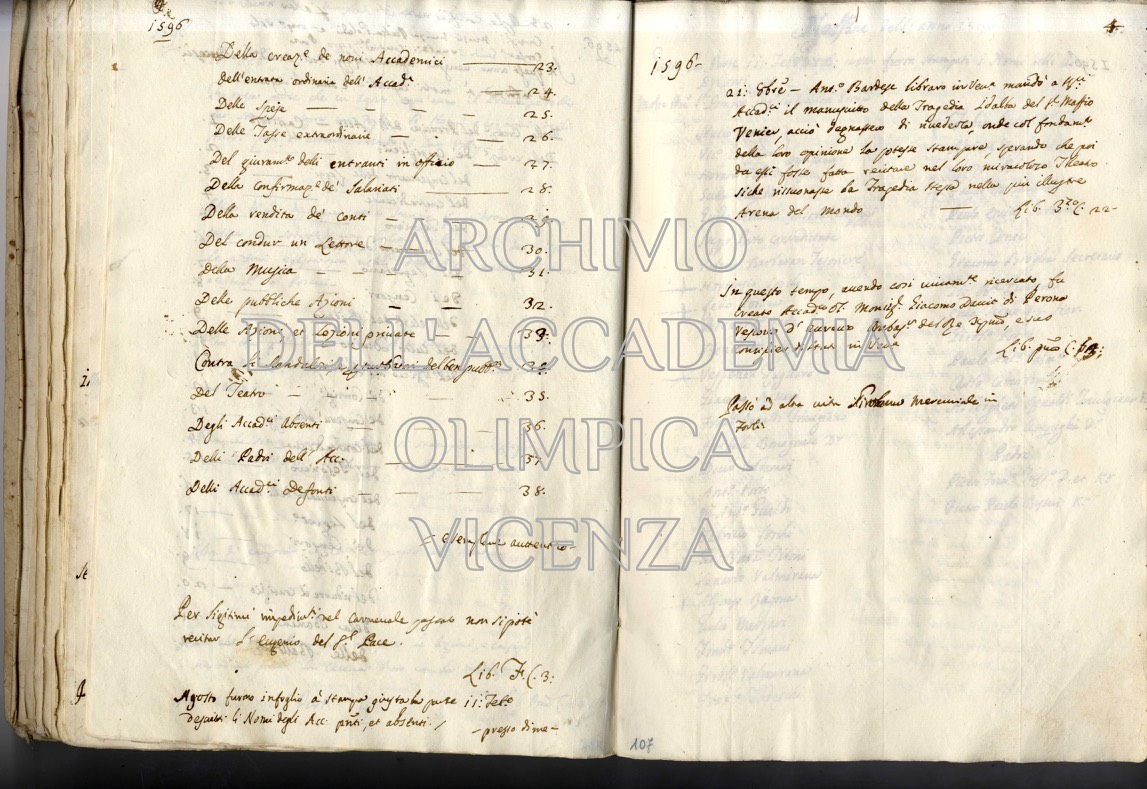 1596
Della creaz.e de novi Accademici 23.
dell'entrata ordinaria dell'Accad.a 24.
Delle Spese 25.
Delle Tasse extraordinarie 26.
Del giuram.to delli entranti in officio 27.
Della confirmaz.e de' Salariati 28.
Della rendita de' conti
Del condur un Lettore 30.
Della Musica 31.
Delle pubbliche Azioni 32.
Delle Azioni, et Lezioni private
Contra
Del Teatro 35.
Degli Accad.ci Absenti 36.
Delli Padri dell'Acc: 37.
Delli Accad.ci Defonti 38.
esemplare autentico
Per legitimi impedim.ti nel Carnevale passato non si poté
recitar l'Eugenio del S.r Pace.
Lib. F C. 3:
Agosto furono in foglio a stampa giusta la parte 11: Feb.o
descritti li Nomi degli Acc: p̃nti, et absenti.
presso di me
4
1596
21: 8bre Ant.o Bardese libraro in Ven.a mandò a q.sti
Accad.ci il manuscritto della Tragedia Idalba del S.r Maffio
Venier, acciò degnassero di rivederla, onde col fondam.to
della loro opinione la potesse stampare, sperando che poi
da essi fosse fatta recitare nel loro miracoloso Theatro
siche risuonasse la Tragedia stessa nella più illustre
Arena del mondo Lib. 3.zo C. 22
In questo tempo, avendo così vivam.te ricercato, fu
creato Accad.co Ol. Monsig.r Giacomo Davia di Verona
Vescovo d' Ambas.r del Re
consiglier di Stato in Ven.a Lib.
Passò ad altra vita Girolamo Mercuriale in
Forlì
107
ARCHIVIO
DELL'ACCADEMIA
OLIMPICA
VICENZA